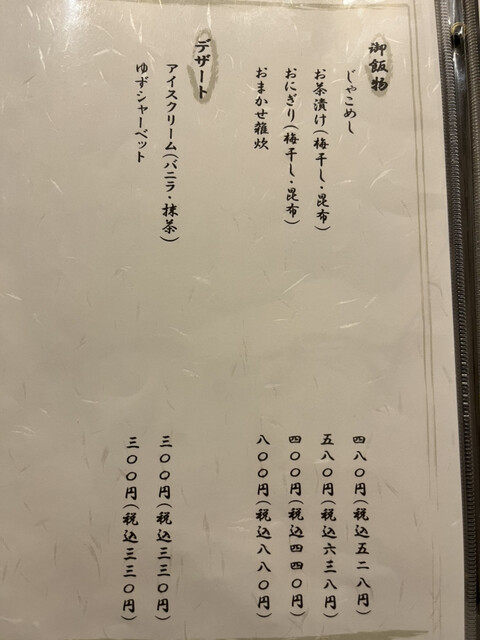 御飯物
じゃこめし
四八〇円(税込五二八円)
お茶漬け(梅干し・昆布)
五八〇円(税込六三八円)
おにぎり(梅干し・昆布)
四〇〇円(税込四四〇円)
おまかせ雑炊
八〇〇円(税込八八〇円)
デザート
アイスクリーム(バニラ・抹茶)
三〇〇円(税込三三〇円)
ゆずシャーベット
三〇〇円(税込三三〇円)